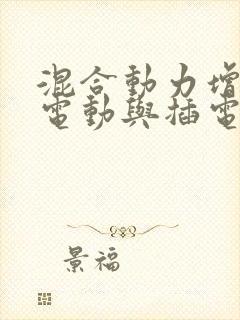 混合動力增
電動與插電
景福